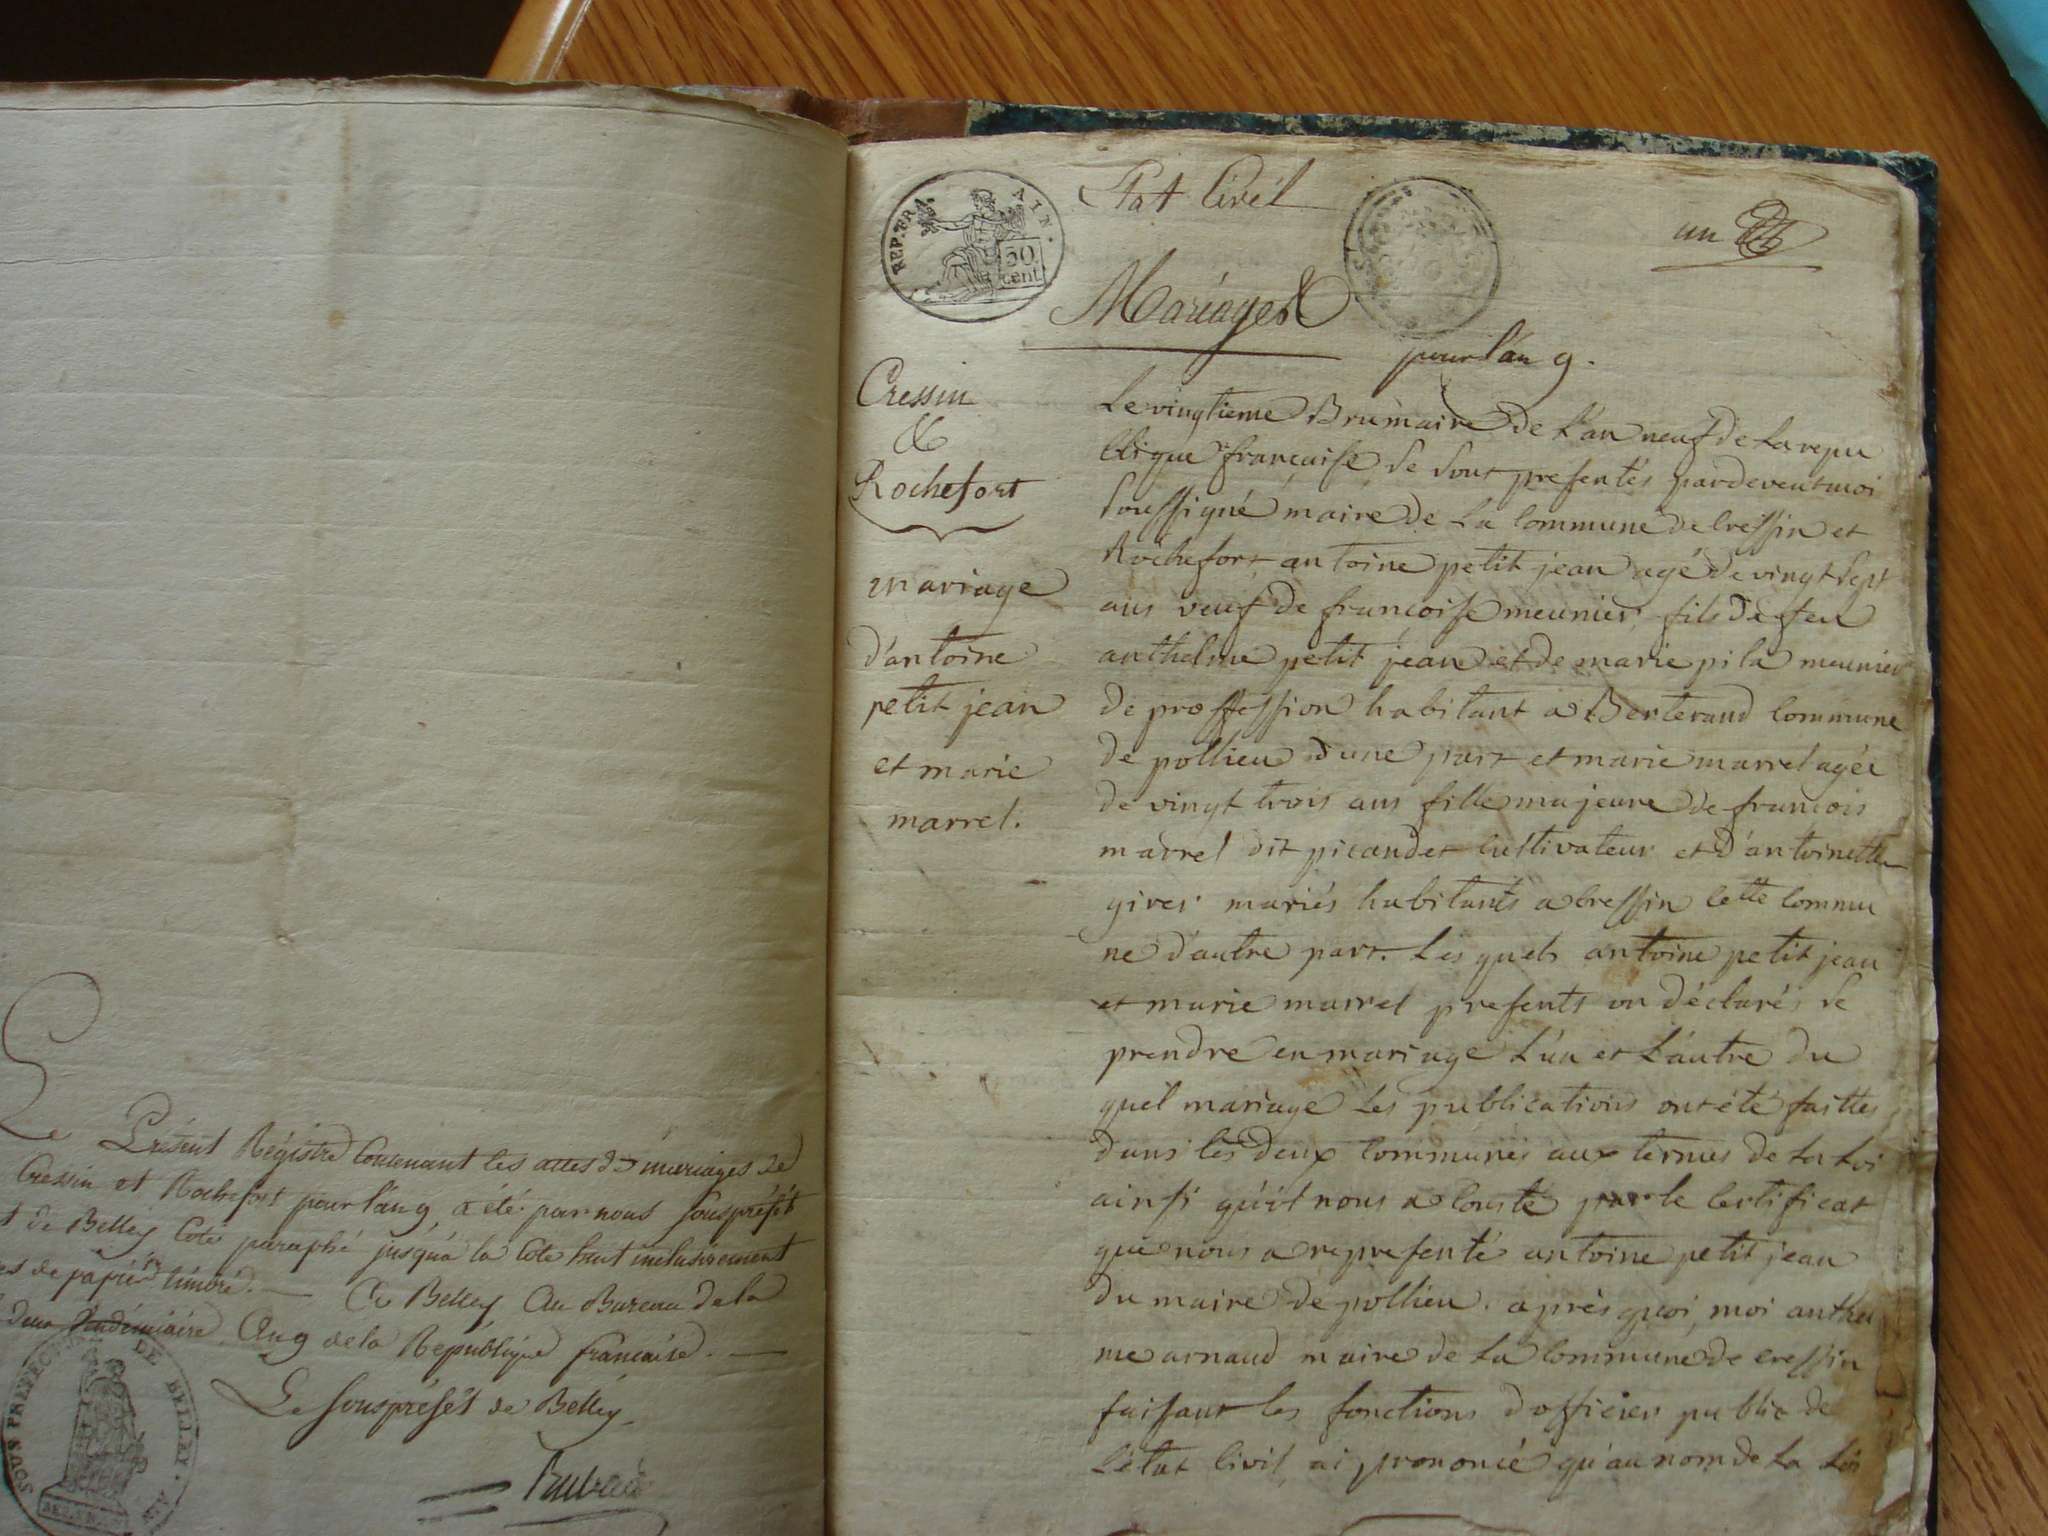 Le Présent Régistre Contenant les actes de mariages de
Cressin et Rochefort pour l'an 9, a été par nous Souspréfét
de Belley Coté paraphé jusqu'a la Cote huit inclusivement
de papier timbré. — A Belley Au Bureau de la
Vendémiaire An 9 de la République francaise. —
Le Souspréfét de Belley
SOUS PREFECT DE BELLEY
REP. FRA. AIN.
50
cent.
Etat Civil
un
Mariages
pour l'an 9.
Cressin
&
Rochefort
mariage
d'antoine
petit jean
et marie
marrel.
Le vingtieme Brumaire de L'an neuf de La repu
blique francaise se sont presentés pardevent moi
soussigné maire de La Commune de Cressin et
Rochefort antoine petit jean agé de vingt sept
ans veuf de francoise meunier, fils de feu
anthelme petit jean et de marie pila meunier
de proffession habitant a Berterand Commune
de pollieu d'une part et marie marrel agée
de vingt trois ans fille majeure de francois
marrel dit picandet Cultivateur et d'antoinette
givei mariés habitants a Cressin Cette Commu
ne d'autre part. Les quels antoine petit jean
et marie marrel presents on déclarés se
prendre en mariage L'un et L'autre du
quel mariage Les publications ont été faittes
dans les deux Communes aux termes de La Loi
ainsi qu'il nous a Consté par le Certificat
que nous a representé antoine petit jean
du maire de pollieu. après quoi, moi anthel
me arnaud maire de La Commune de Cressin
faisant les fonctions d'officier public de
L'état Civil ai prononcé qu'au nom de La Loi